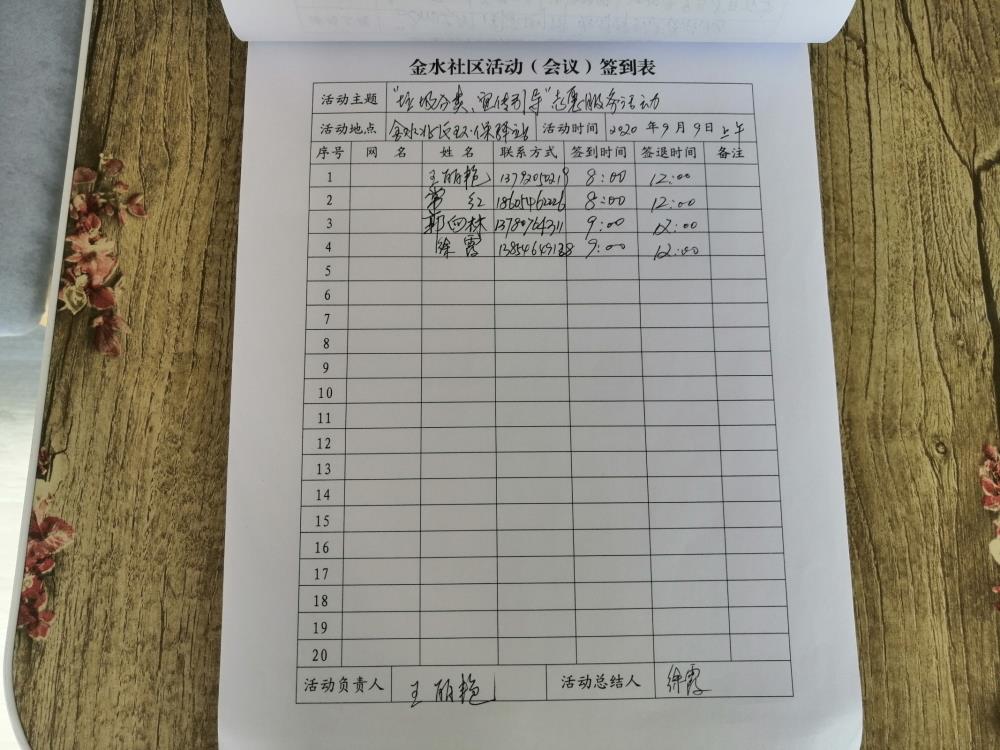 金水社区活动（会议）签到表
活动主题 "垃圾分类、宣传引导"志愿服务活动
活动地点 金水社区环保驿站 活动时间 2020年9月9日上午
序号 网名 姓名 联系方式 签到时间 签退时间 备注
1 王丽艳 8:00 12:00
2 常红 18605462226 8:00 12:00
3 13780764311 9:00 12:00
4 徐霞 9:00 12:00
5
6
7
8
9
10
11
12
13
14
15
16
17
18
19
20
活动负责人 王丽艳 活动总结人 徐霞